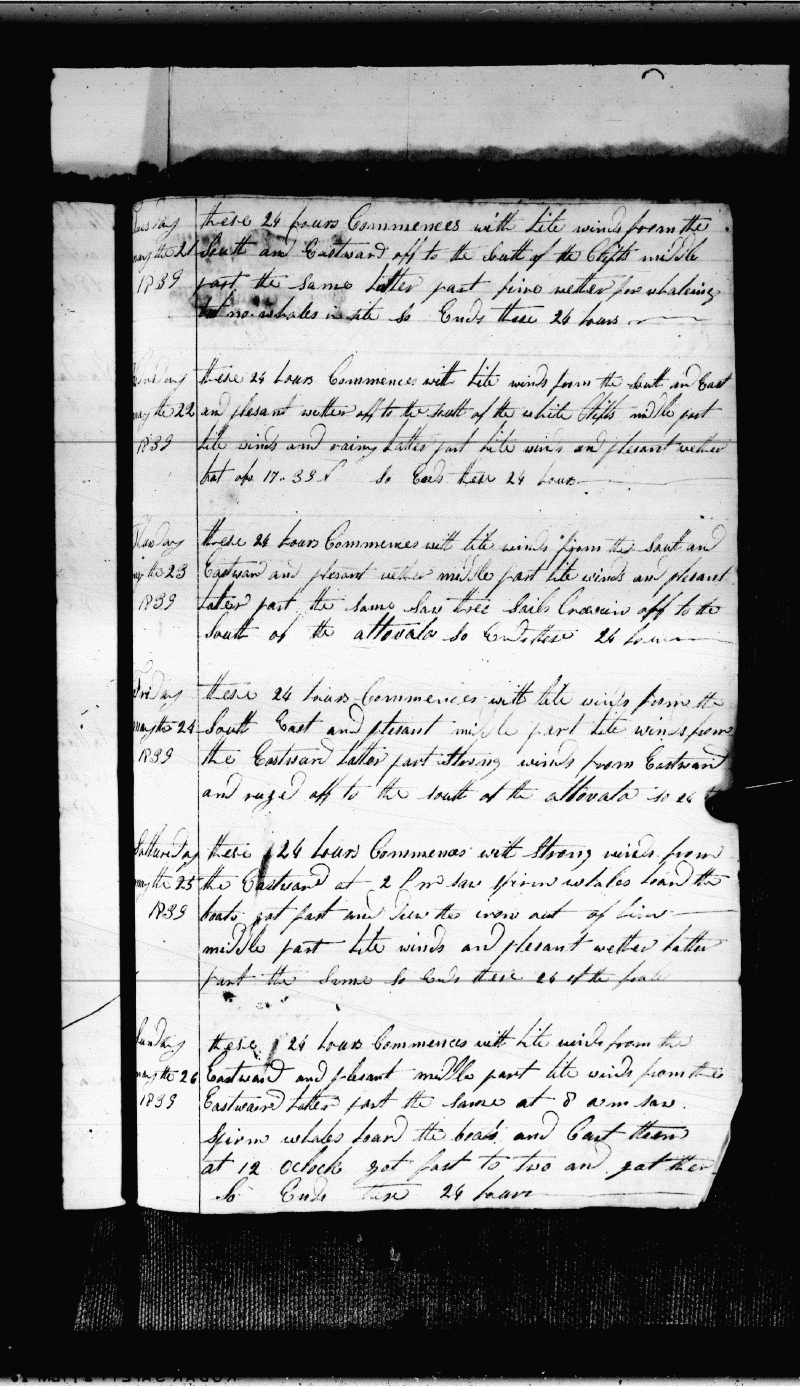 Tuesday these 24 hours Commences with Lite winds from the
may the 21 South and Eastward off to the South of the Clifts middle
1839 part the same latter part fine wether for whaleing
but no whales in site So Ends these 24 hours
these 24 hours Commences with Lite winds from the South and East
may the 22 and plesant wether off to the South of the white Clifts middle part
1839 Lite winds and rainy Latter part Lite winds and plesant wether
17-39 So Ends these 24 hours
these 24 hours Commences with Lite winds from the South and
may the 23 Eastward and plesant wether middle part Lite winds and plesant
1839 Later part the same Saw three Sails off to the
South of the altovala So Ends these 24 hours
Friday these 24 hours Commences with Lite winds from the
may the 24 South East and plesant middle part Lite winds from
1839 the Eastward Latter part Strong winds from Eastward
and off to the South of the altovala So 24
Satturday these 24 hours Commences with Strong winds from
may the 25 the Eastward at 2 P m saw Spirm whales Loard the
1839 boats got fast and the iron out of him
middle part Lite winds and plesant wether Latter
part the Same So Ends these 24 of the
Sunday these 24 hours Commences with Lite winds from the
may the 26 Eastward and plesant middle part Lite winds from the
1839 Eastward Latter part the same at 8 a m saw
Spirm whales Loard the boats and them
at 12 Oclock got fast to two and got them
So Ends these 24 hours